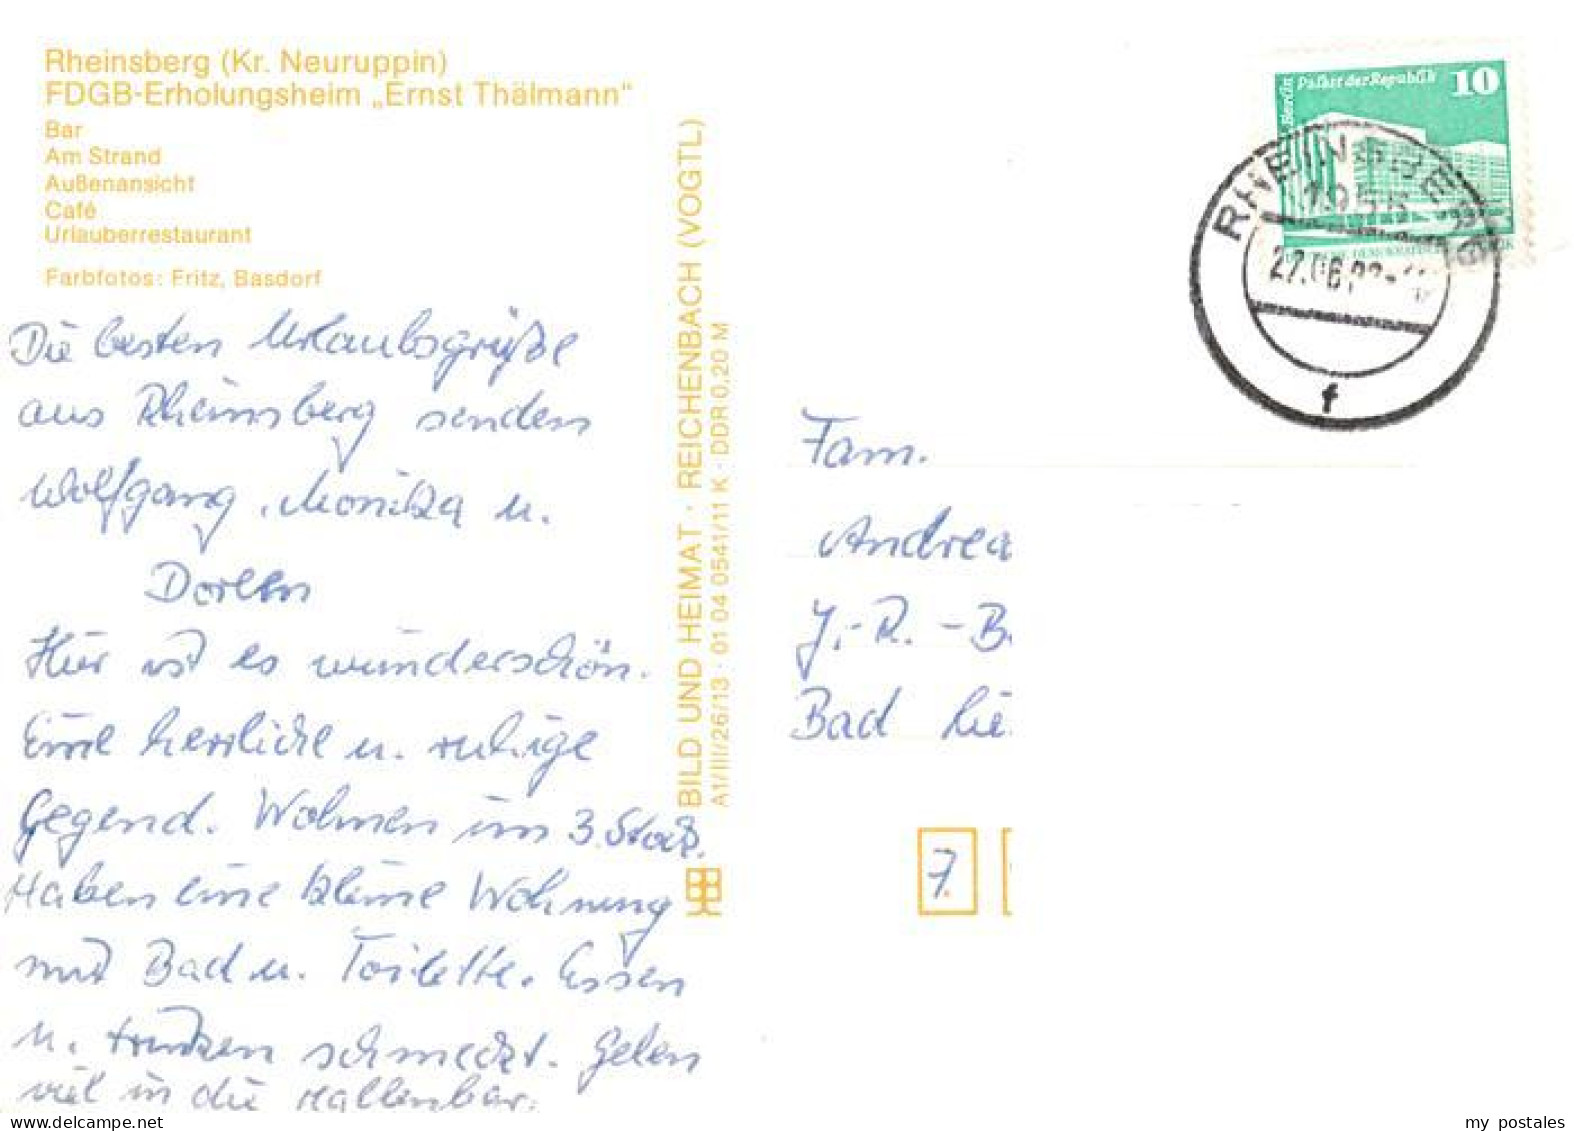 Rheinsberg (Kr. Neuruppin)
FDGB-Erholungsheim „Ernst Thälmann"
Bar
Am Strand
Außenansicht
Café
Urlauberrestaurant
Farbfotos: Fritz, Basdorf
Die besten Urlaubsgrüße
aus Rheinsberg senden
Wolfgang, Monika u.
Doreen
Hier ist es wunderschön.
Eine herrliche u. ruhige
Gegend. Wohnen im 3. Stock.
Haben eine kleine Wohnung
mit Bad u. Toilette. Essen
u. trinken schmeckt. Gehen
viel in die Hallenbar.
BILD UND HEIMAT · REICHENBACH (VOGTL)
A1/III/26/13 · 01 04 0541/11 K · DDR 0,20 M
Berlin
Palast der Republik 10
RHEINSBERG
1955
f
Fam.
Andrea
J.-R.-B.
Bad Lie
7.
my postales